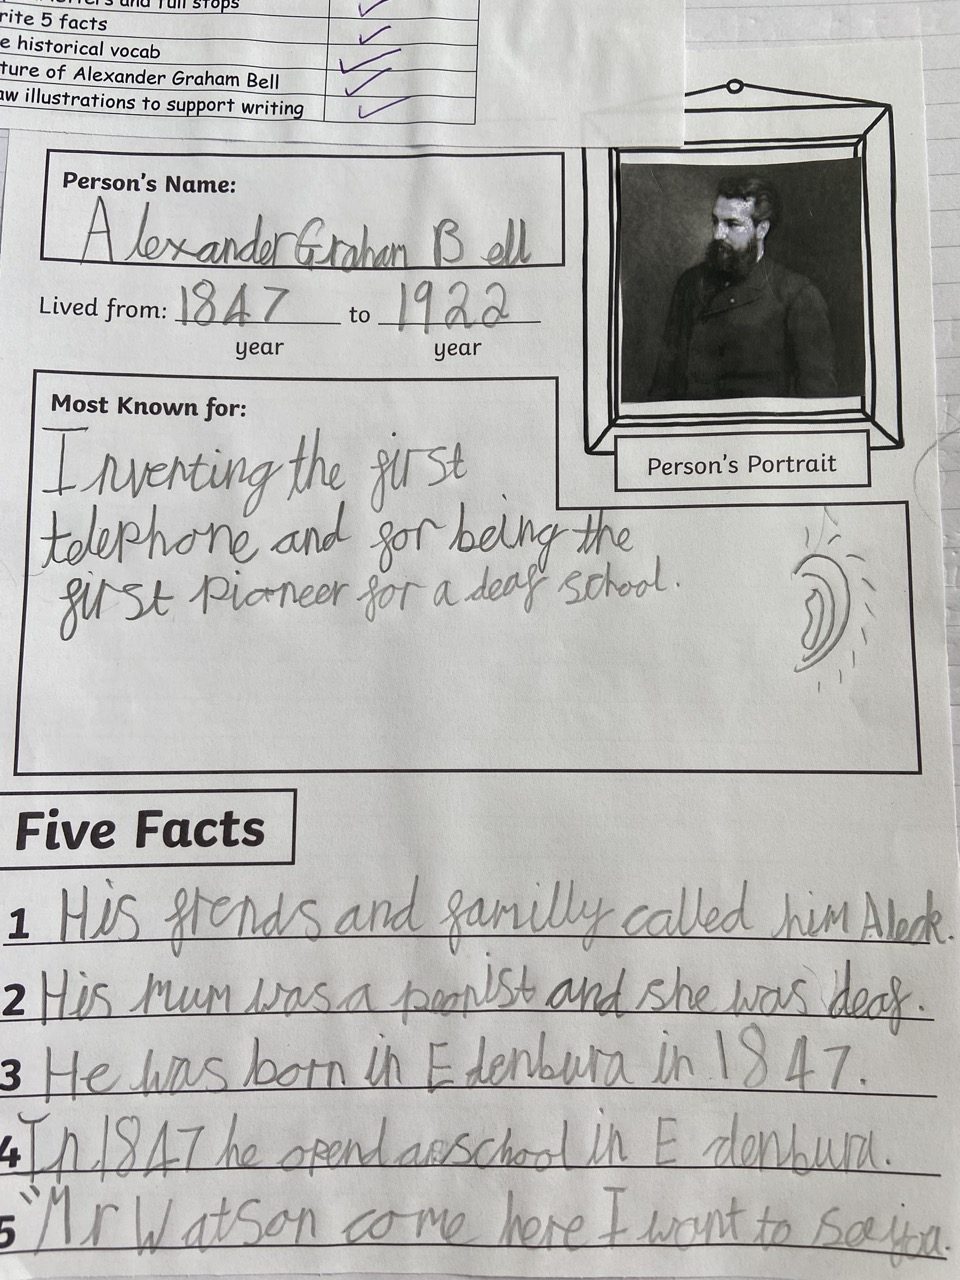 and full stops
rite 5 facts
e historical vocab
ture of Alexander Graham Bell
aw illustrations to support writing
Person's Name:
Alexander Graham Bell
Lived from: 1847 to 1922
year year
Person's Portrait
Most Known for:
Inventing the first
telephone and for being the
first pioneer for a deaf school.
Five Facts
1 His frends and familly called him Aleck.
2 His mum was a peanist and she was deaf.
3 He was born in Edenbura in 1847.
4 In 1847 he opend a school in Edenbura.
5 "Mr Watson come here I want to see you.